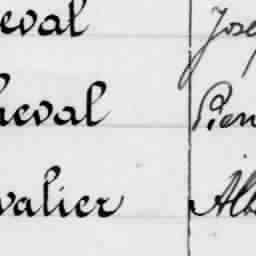 eval Jose
heval Pierr
valier Alb